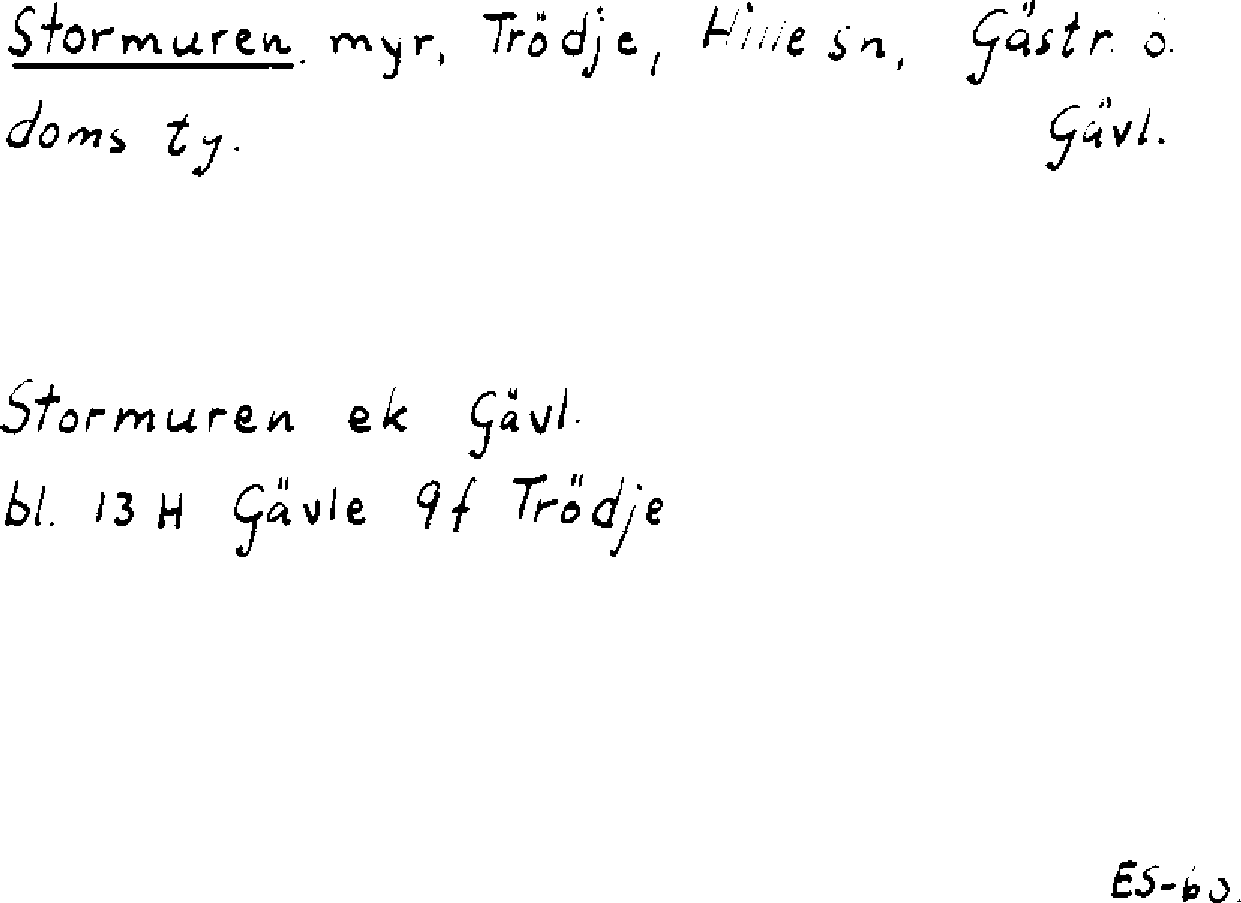 Stormuren. myr, Trödje, Hille sn, Gästr. ö.
doms ty. Gävl.
Stormuren ek Gävl.
bl. 13 H Gävle 9f Trödje
ES-60.